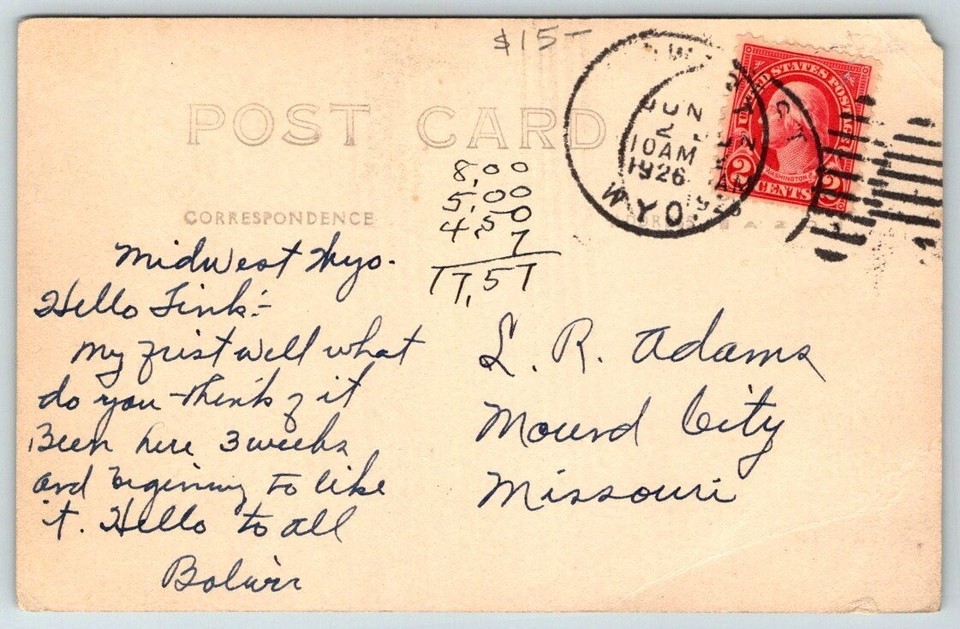 $15-
POST CARD
JUN
2
10AM
1926
WYO.
UNITED STATES POSTAGE
WASHINGTON
2 CENTS 2
CORRESPONDENCE
8,00
5,00
4,50
7
17,57
Midwest Wyo.
Hello Tink:-
My frist well what
do you think of it
Been here 3 weeks
and beginning to like
it. Hello to all
L. R. Adams
Mound City
Missouri